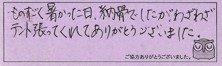 ものすごく暑かった日、納骨でしたがわざわざ
テント張ってくれてありがとうございました。
ご協力ありがとうございました。